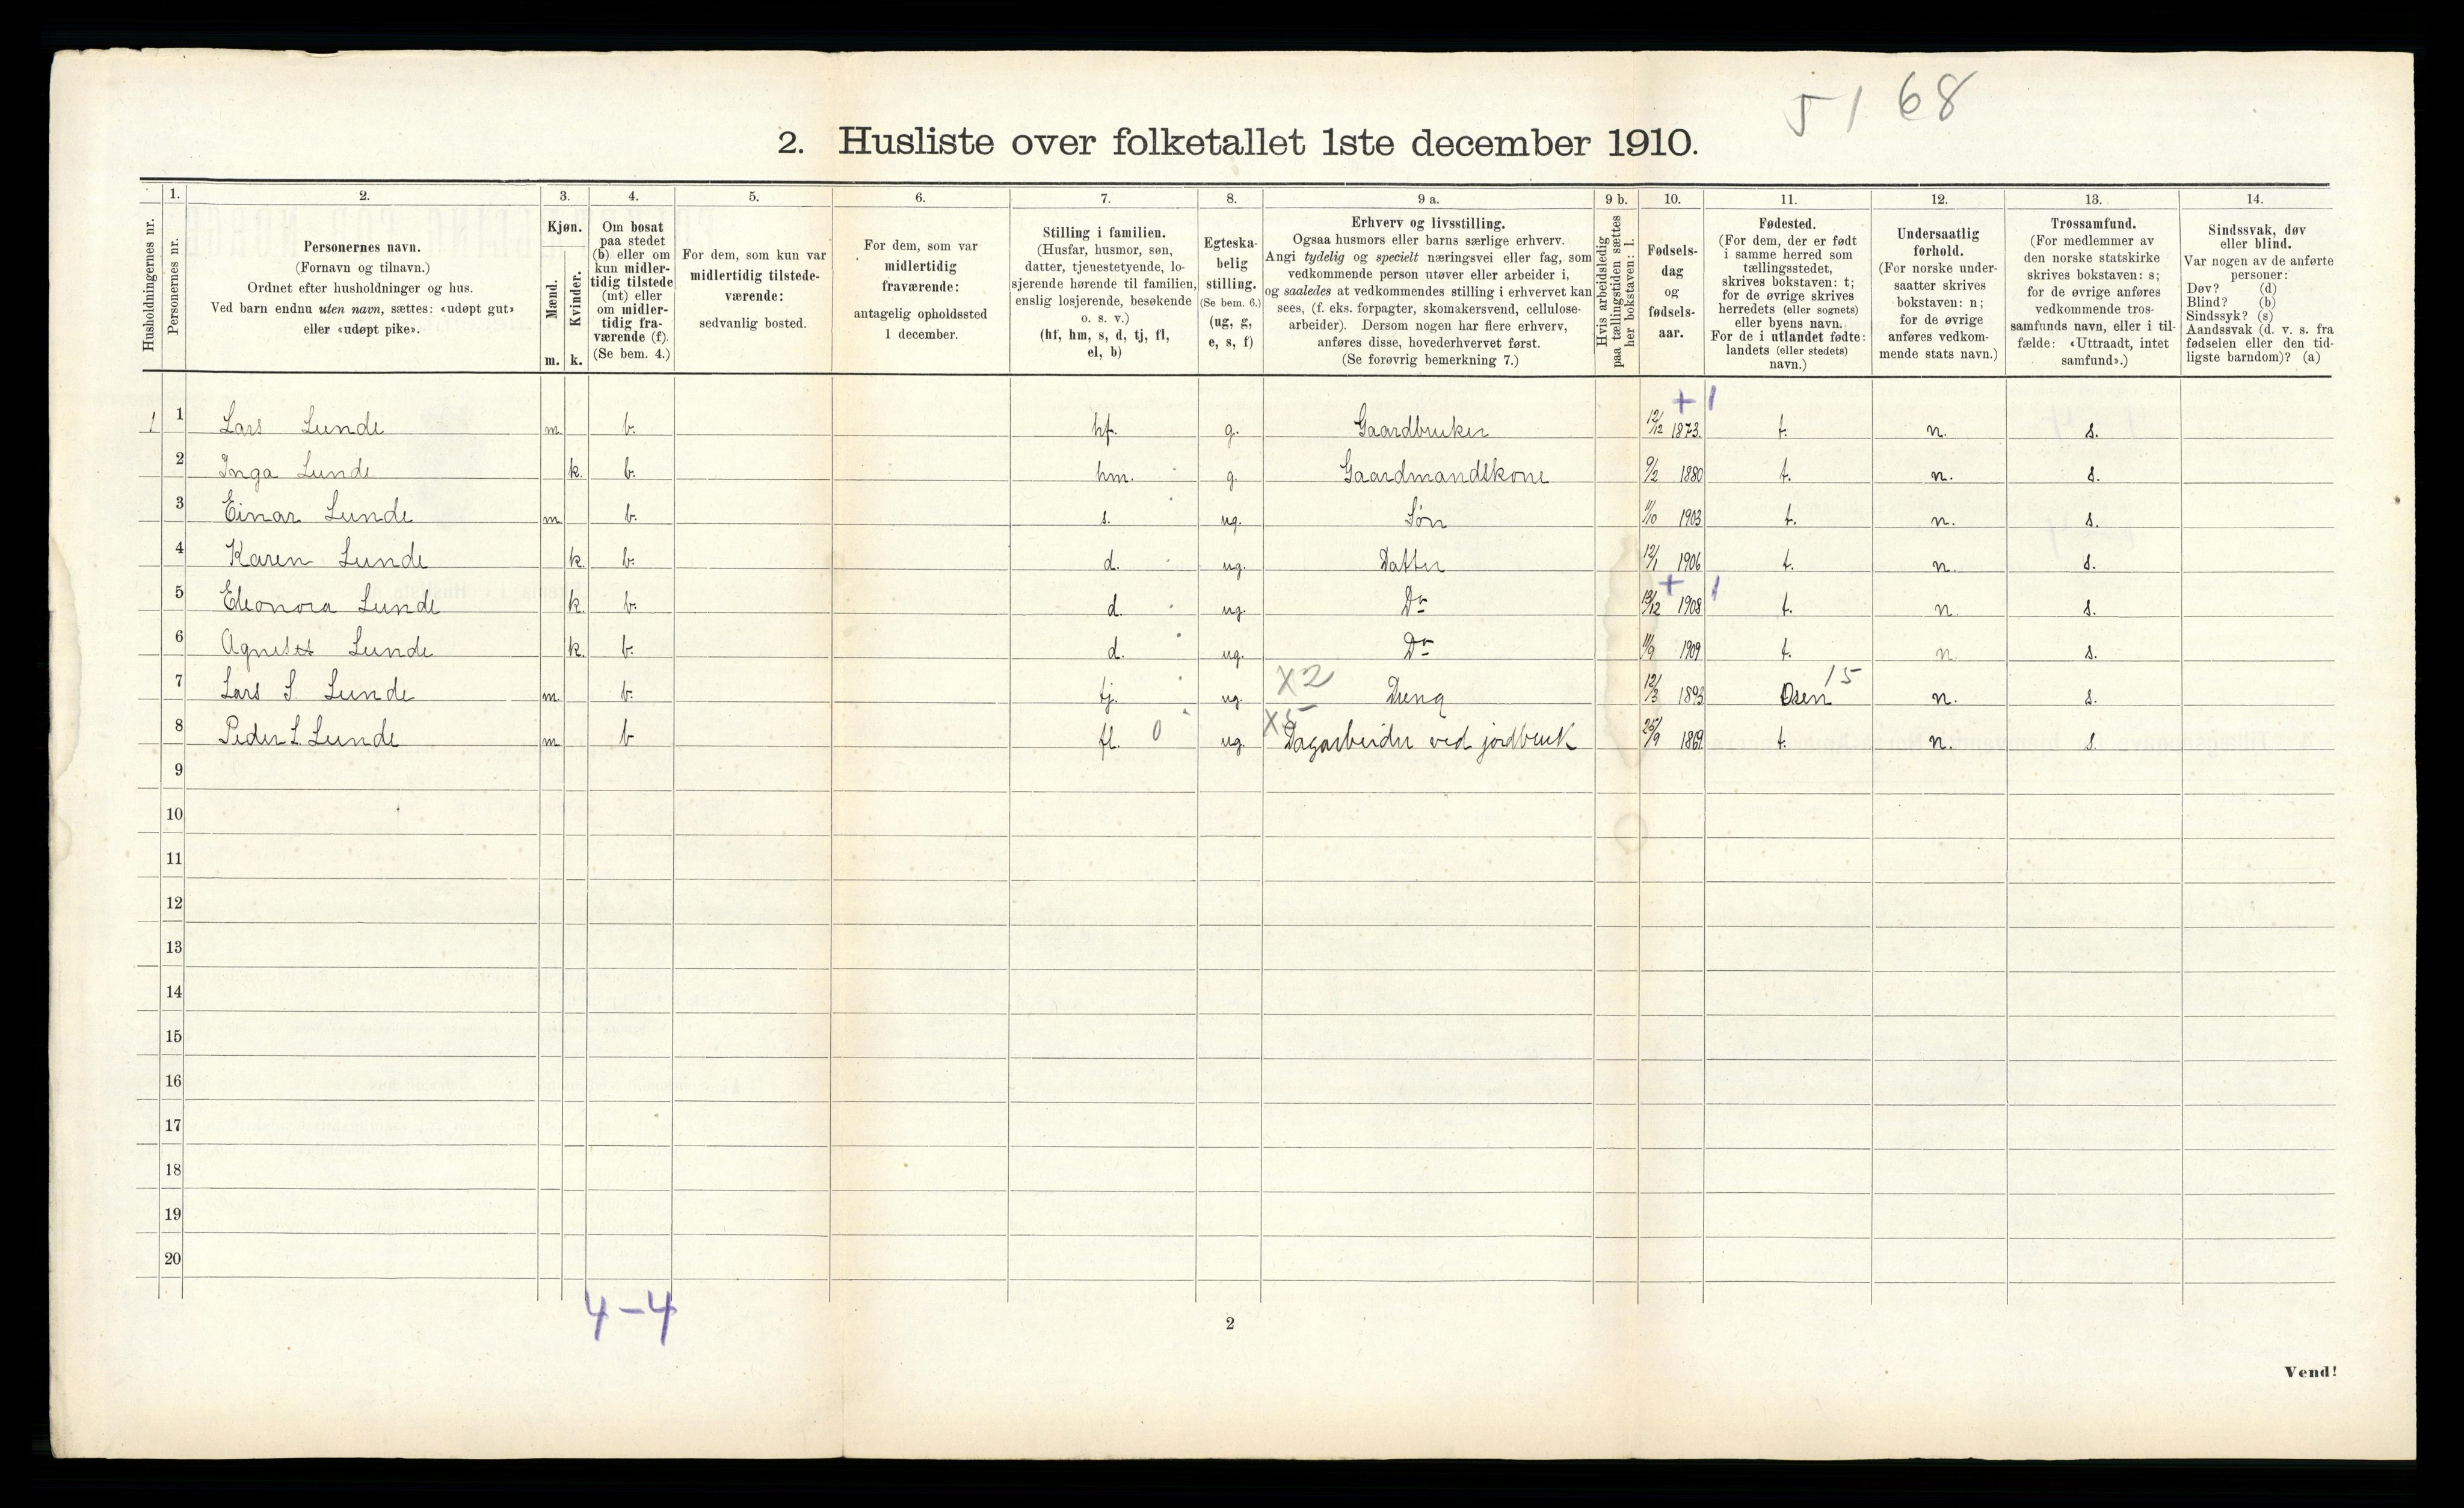 51 68
2. Husliste over folketallet 1ste december 1910.
Husholdningernes nr.
1.
Personernes nr.
2.
Personernes navn.
(Fornavn og tilnavn.)
Ordnet efter husholdninger og hus.
Ved barn endnu uten navn, sættes: «udøpt gut»
eller «udøpt pike».
3.
Kjøn.
Mænd.
Kvinder.
m. k.
4.
Om bosat
paa stedet
(b) eller om
kun midler-
tidig tilstede
(mt) eller
om midler-
tidig fra-
værende (f).
(Se bem. 4.)
5.
For dem, som kun var
midlertidig tilstede-
værende:
sedvanlig bosted.
6.
For dem, som var
midlertidig
fraværende:
antagelig opholdssted
1 december.
7.
Stilling i familien.
(Husfar, husmor, søn,
datter, tjenestetyende, lo-
sjerende hørende til familien,
enslig losjerende, besøkende
o. s. v.)
(hf, hm, s, d, tj, fl,
el, b)
8.
Egteska-
belig
stilling.
(Se bem. 6.)
(ug, g,
e, s, f)
9 a.
Erhverv og livsstilling.
Ogsaa husmors eller barns særlige erhverv.
Angi tydelig og specielt næringsvei eller fag, som
vedkommende person utøver eller arbeider i,
og saaledes at vedkommendes stilling i erhvervet kan
sees, (f. eks. forpagter, skomakersvend, cellulose-
arbeider). Dersom nogen har flere erhverv,
anføres disse, hovederhvervet først.
(Se forøvrig bemerkning 7.)
9 b.
Hvis arbeidsledig
paa tællingstiden sættes
her bokstaven: l.
10.
Fødsels-
dag
og
fødsels-
aar.
11.
Fødested.
(For dem, der er født
i samme herred som
tællingsstedet,
skrives bokstaven: t;
for de øvrige skrives
herredets (eller sognets)
eller byens navn.
For de i utlandet fødte:
landets (eller stedets)
navn.)
12.
Undersaatlig
forhold.
(For norske under-
saatter skrives
bokstaven: n;
for de øvrige
anføres vedkom-
mende stats navn.)
13.
Trossamfund.
(For medlemmer av
den norske statskirke
skrives bokstaven: s;
for de øvrige anføres
vedkommende tros-
samfunds navn, eller i til-
fælde: «Uttraadt, intet
samfund».)
14.
Sindssvak, døv
eller blind.
Var nogen av de anførte
personer:
Døv? (d)
Blind? (b)
Sindssyk? (s)
Aandssvak (d. v. s. fra
fødselen eller den tid-
ligste barndom)? (a)
+ 1
1 1 Lars Lunde m b. hf. g. Gaardbruker 12/12 1873. t. n. s.
2 Inga Lunde k. b. hm. g. Gaardmandskone 9/2 1880 t. n. s.
3 Einar Lunde m b. s. ug. Søn 11/10 1903 t. n. s.
4 Karen Lunde k. b. d. ug. Datter 12/1 1906 t. n. s.
+ 1
5 Eleonora Lunde k. b. d. ug. Do 13/12 1908 t. n. s.
6 Lunde k. b. d. ug. Do 11/9 1909 t. n. s.
x2 15
7 Lars S. Lunde m b. tj. ug. Dreng 12/3 1893 Osen n. s.
x5
8 Peder L. Lunde m b fl. 0 ug. Dagarbeider ved jordbruk 25/9 1869. t. n. s.
9
10
11
12
13
14
15
16
17
18
19
20
4-4
2
Vend!